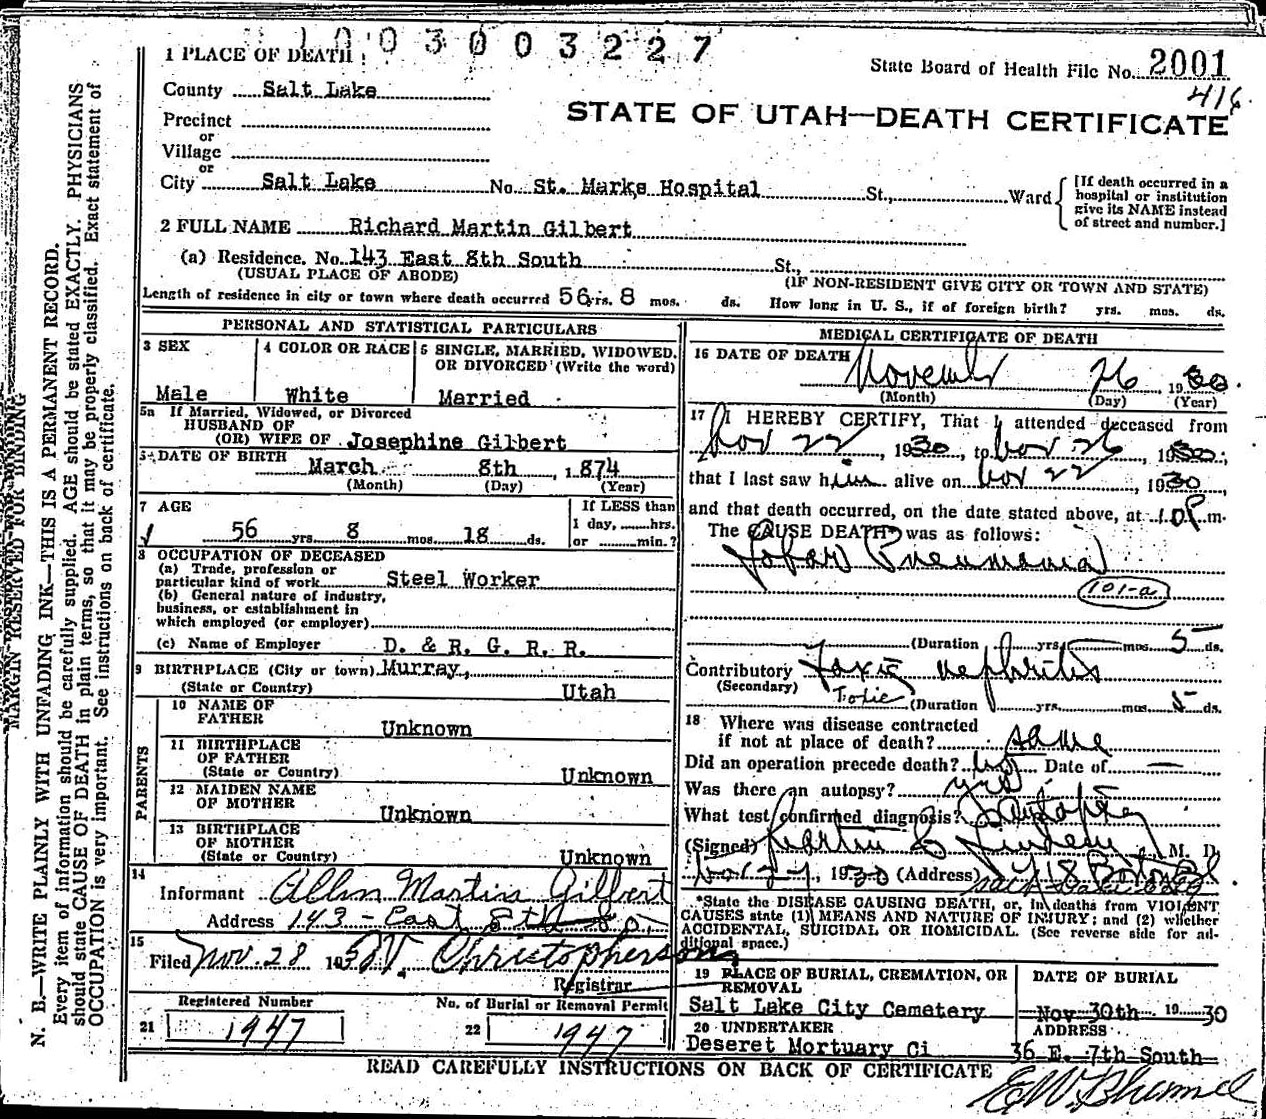 1003003227
1 PLACE OF DEATH
State Board of Health File No. 2001
416
County Salt Lake
STATE OF UTAH—DEATH CERTIFICATE
Precinct
or
Village
or
City Salt Lake No. St. Marks Hospital St., Ward
[If death occurred in a
hospital or institution
give its NAME instead
of street and number.]
2 FULL NAME Richard Martin Gilbert
(a) Residence. No. 143 East 8th South St.,
(USUAL PLACE OF ABODE) (IF NON-RESIDENT GIVE CITY OR TOWN AND STATE)
Length of residence in city or town where death occurred 56 yrs. 8 mos. ds. How long in U. S., if of foreign birth? yrs. mos. ds.
PERSONAL AND STATISTICAL PARTICULARS
3 SEX
Male
4 COLOR OR RACE
White
5 SINGLE, MARRIED, WIDOWED,
OR DIVORCED (Write the word)
Married
5a If Married, Widowed, or Divorced
HUSBAND OF
(OR) WIFE OF Josephine Gilbert
DATE OF BIRTH March 8th, 1874
(Month) (Day) (Year)
7 AGE
56 yrs. 8 mos. 18 ds.
If LESS than
1 day, hrs.
or min.?
8 OCCUPATION OF DECEASED
(a) Trade, profession or
particular kind of work Steel Worker
(b) General nature of industry,
business, or establishment in
which employed (or employer)
(c) Name of Employer D. & R. G. R. R.
9 BIRTHPLACE (City or town) Murray,
(State or Country) Utah
PARENTS
10 NAME OF
FATHER Unknown
11 BIRTHPLACE
OF FATHER
(State or Country) Unknown
12 MAIDEN NAME
OF MOTHER Unknown
13 BIRTHPLACE
OF MOTHER
(State or Country) Unknown
14
Informant Allen Martin Gilbert
Address 143 - East 8th So.
15
Filed Nov. 28 1930 Christopherson
Registrar
Registered Number
21 1947
No. of Burial or Removal Permit
22 1947
MEDICAL CERTIFICATE OF DEATH
16 DATE OF DEATH
November 26 1930
(Month) (Day) (Year)
17 I HEREBY CERTIFY, That I attended deceased from
Nov 22, 1930, to Nov 26, 1930;
that I last saw him alive on Nov 22, 1930
and that death occurred, on the date stated above, at 10 P m.
The CAUSE DEATH was as follows:
Lobar Pneumonia
101-a
(Duration yrs. mos. 5 ds.
Contributory Toxic nephritis
(Secondary) Toxic (Duration yrs. mos. 5 ds.
18 Where was disease contracted
if not at place of death? Same
Did an operation precede death? no Date of —
Was there an autopsy? yes
What test confirmed diagnosis? Autopsy
(Signed) Martin C Lindem M. D.
Nov 27, 1930 (Address)
Salt Lake City
*State the DISEASE CAUSING DEATH, or, in deaths from VIOLENT
CAUSES state (1) MEANS AND NATURE OF INJURY; and (2) whether
ACCIDENTAL, SUICIDAL OR HOMICIDAL. (See reverse side for ad-
ditional space.)
19 PLACE OF BURIAL, CREMATION, OR
REMOVAL
Salt Lake City Cemetery
DATE OF BURIAL
Nov 30th 19 30
20 UNDERTAKER
Deseret Mortuary Ci
ADDRESS
36 E. 7th South
READ CAREFULLY INSTRUCTIONS ON BACK OF CERTIFICATE
MARGIN RESERVED FOR BINDING
N. B.—WRITE PLAINLY WITH UNFADING INK—THIS IS A PERMANENT RECORD.
Every item of information should be carefully supplied. AGE should be stated EXACTLY. PHYSICIANS
should state CAUSE OF DEATH in plain terms, so that it may be properly classified. Exact statement of
OCCUPATION is very important. See instructions on back of certificate.